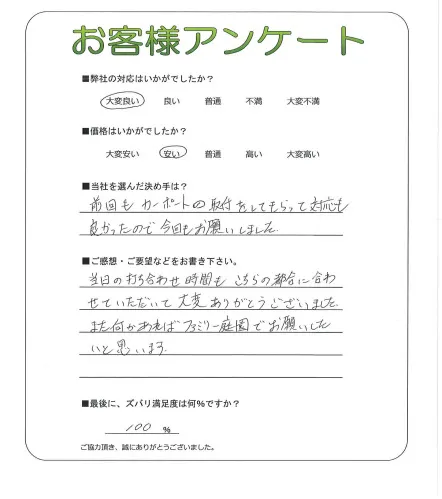 お客様アンケート
■弊社の対応はいかがでしたか？
大変良い 良い 普通 不満 大変不満
■価格はいかがでしたか？
大変安い 安い 普通 高い 大変高い
■当社を選んだ決め手は？
前回も カーポートの 取付をしてもらって 対応も
良かったので 今回もお願いしました
■ご感想・ご要望などをお書き下さい。
当日の打ち合わせ 時間も こちらの都合に合わ
せていただいて 大変 ありがとうございました
また何かあれば ファミリー庭園でお願いした
いと思います.
■最後に、ズバリ満足度は何%ですか？
100 %
ご協力頂き、誠にありがとうございました。